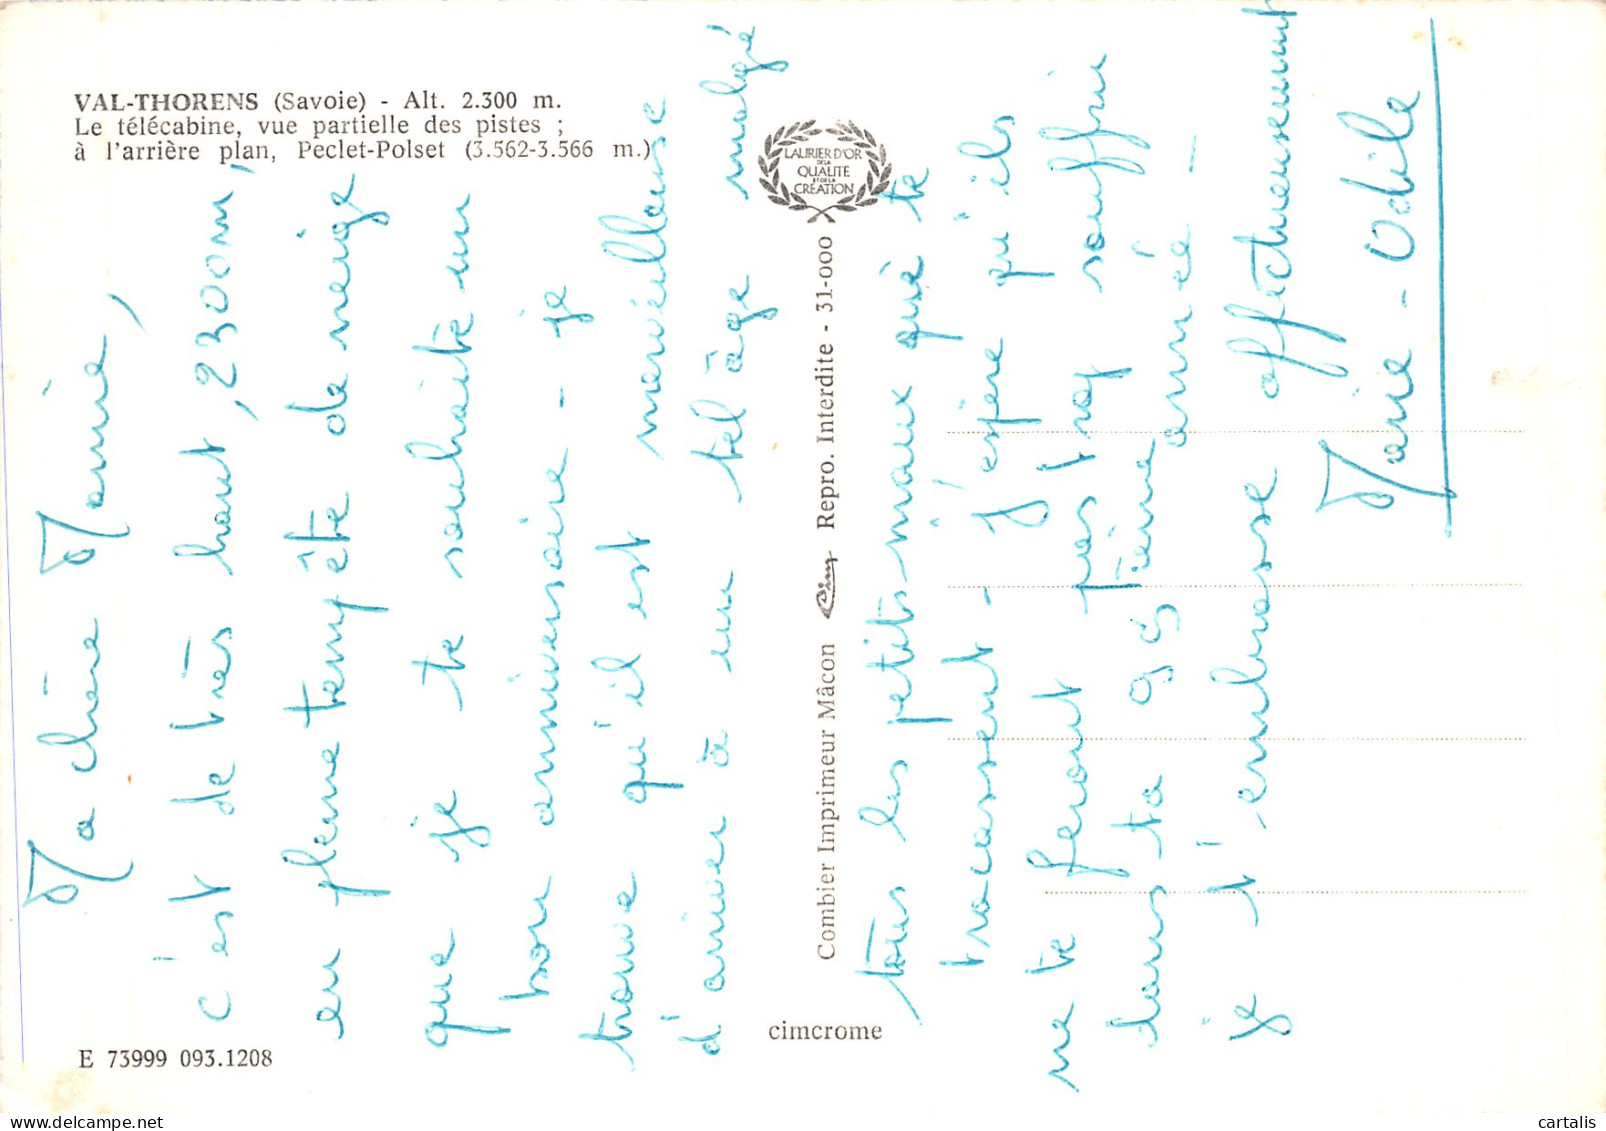 VAL-THORENS (Savoie) - Alt. 2.300 m.
Le télécabine, vue partielle des pistes ;
à l'arrière plan, Peclet-Polset (3.562-3.566 m.)
LAURIER D'OR
DE LA
QUALITE
ET DE LA
CREATION
Combier Imprimeur Mâcon Cim Repro. Interdite - 31-000
cimcrome
E 73999 093.1208
Ma chère Mamie,
c'est de très haut, 2300m,
en pleine tempête de neige
que je te souhaite un
bon anniversaire - je
trouve qu'il est merveilleuse
d'arriver à un tel âge malgré
tous les petits maux qui te
tracassent - j'espère qu'ils
ne te feront pas trop souffrir
dans ta 95 ième année -
je t'embrasse affectueusement
Marie-Odile
cartalis